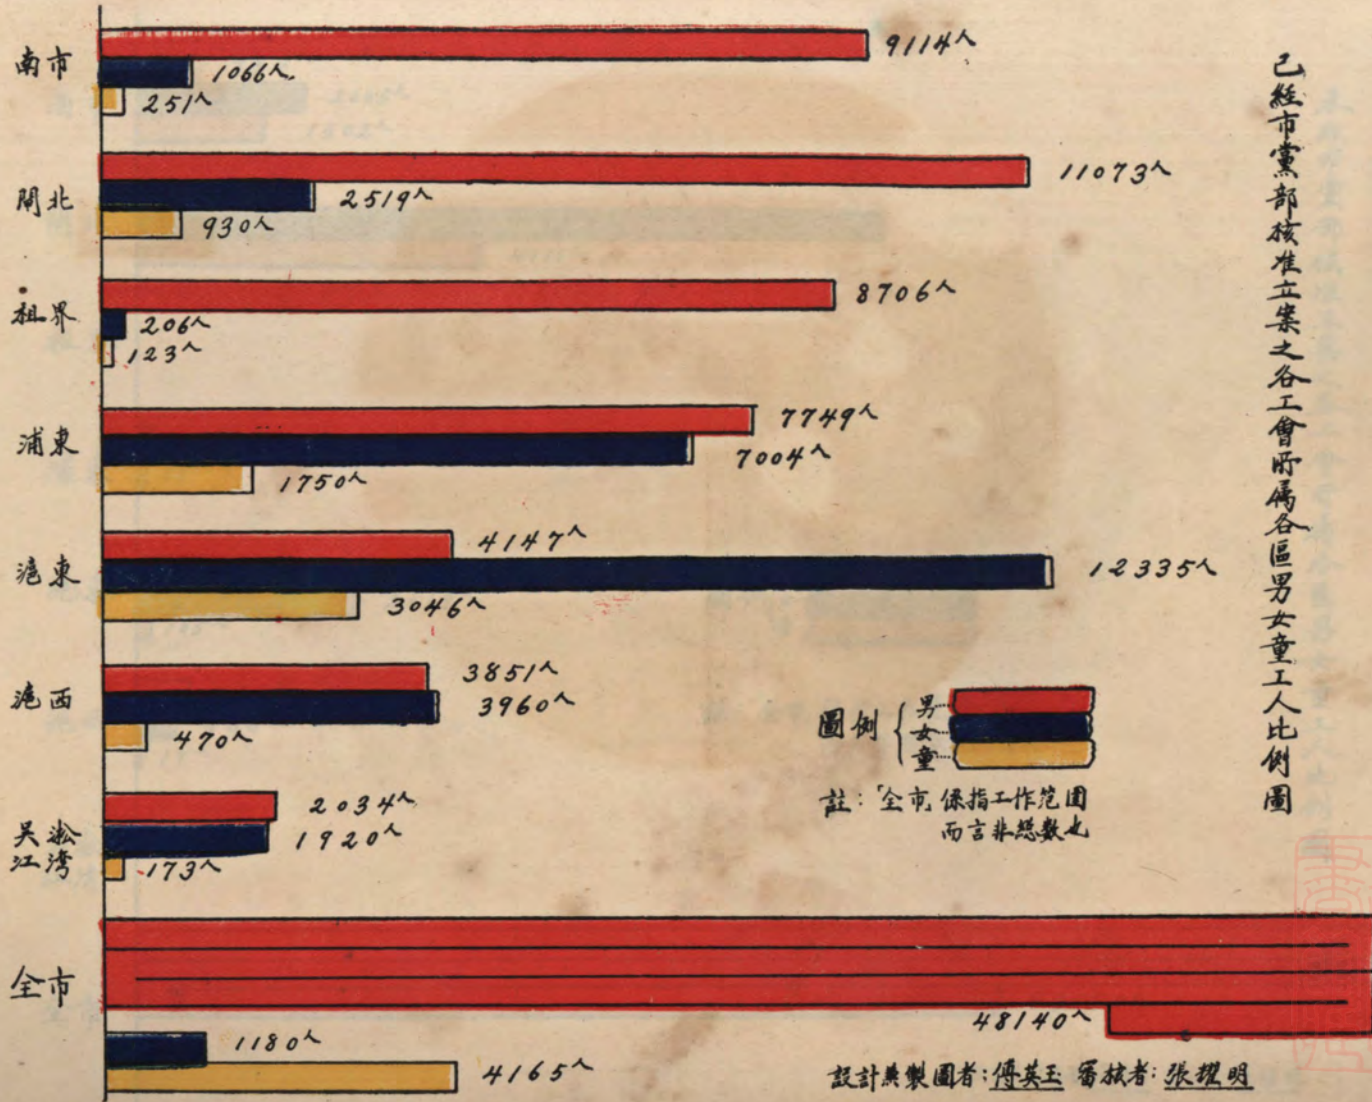 已經市黨部核准立案之各工會所屬各區男女童工人比例圖
南市
9114人
1066人
251人
閘北
11073人
2519人
930人
租界
8706人
206人
123人
浦東
7749人
7004人
1750人
滬東
4147人
12335人
3046人
滬西
3851人
3960人
470人
吴淞
江湾
2034人
1920人
173人
全市
48140人
1180人
4165人
圖例
男
女
童
註：「全市」係指工作范囲
而言非總数也
設計兼製圖者：傅英玉 審核者：張耀明